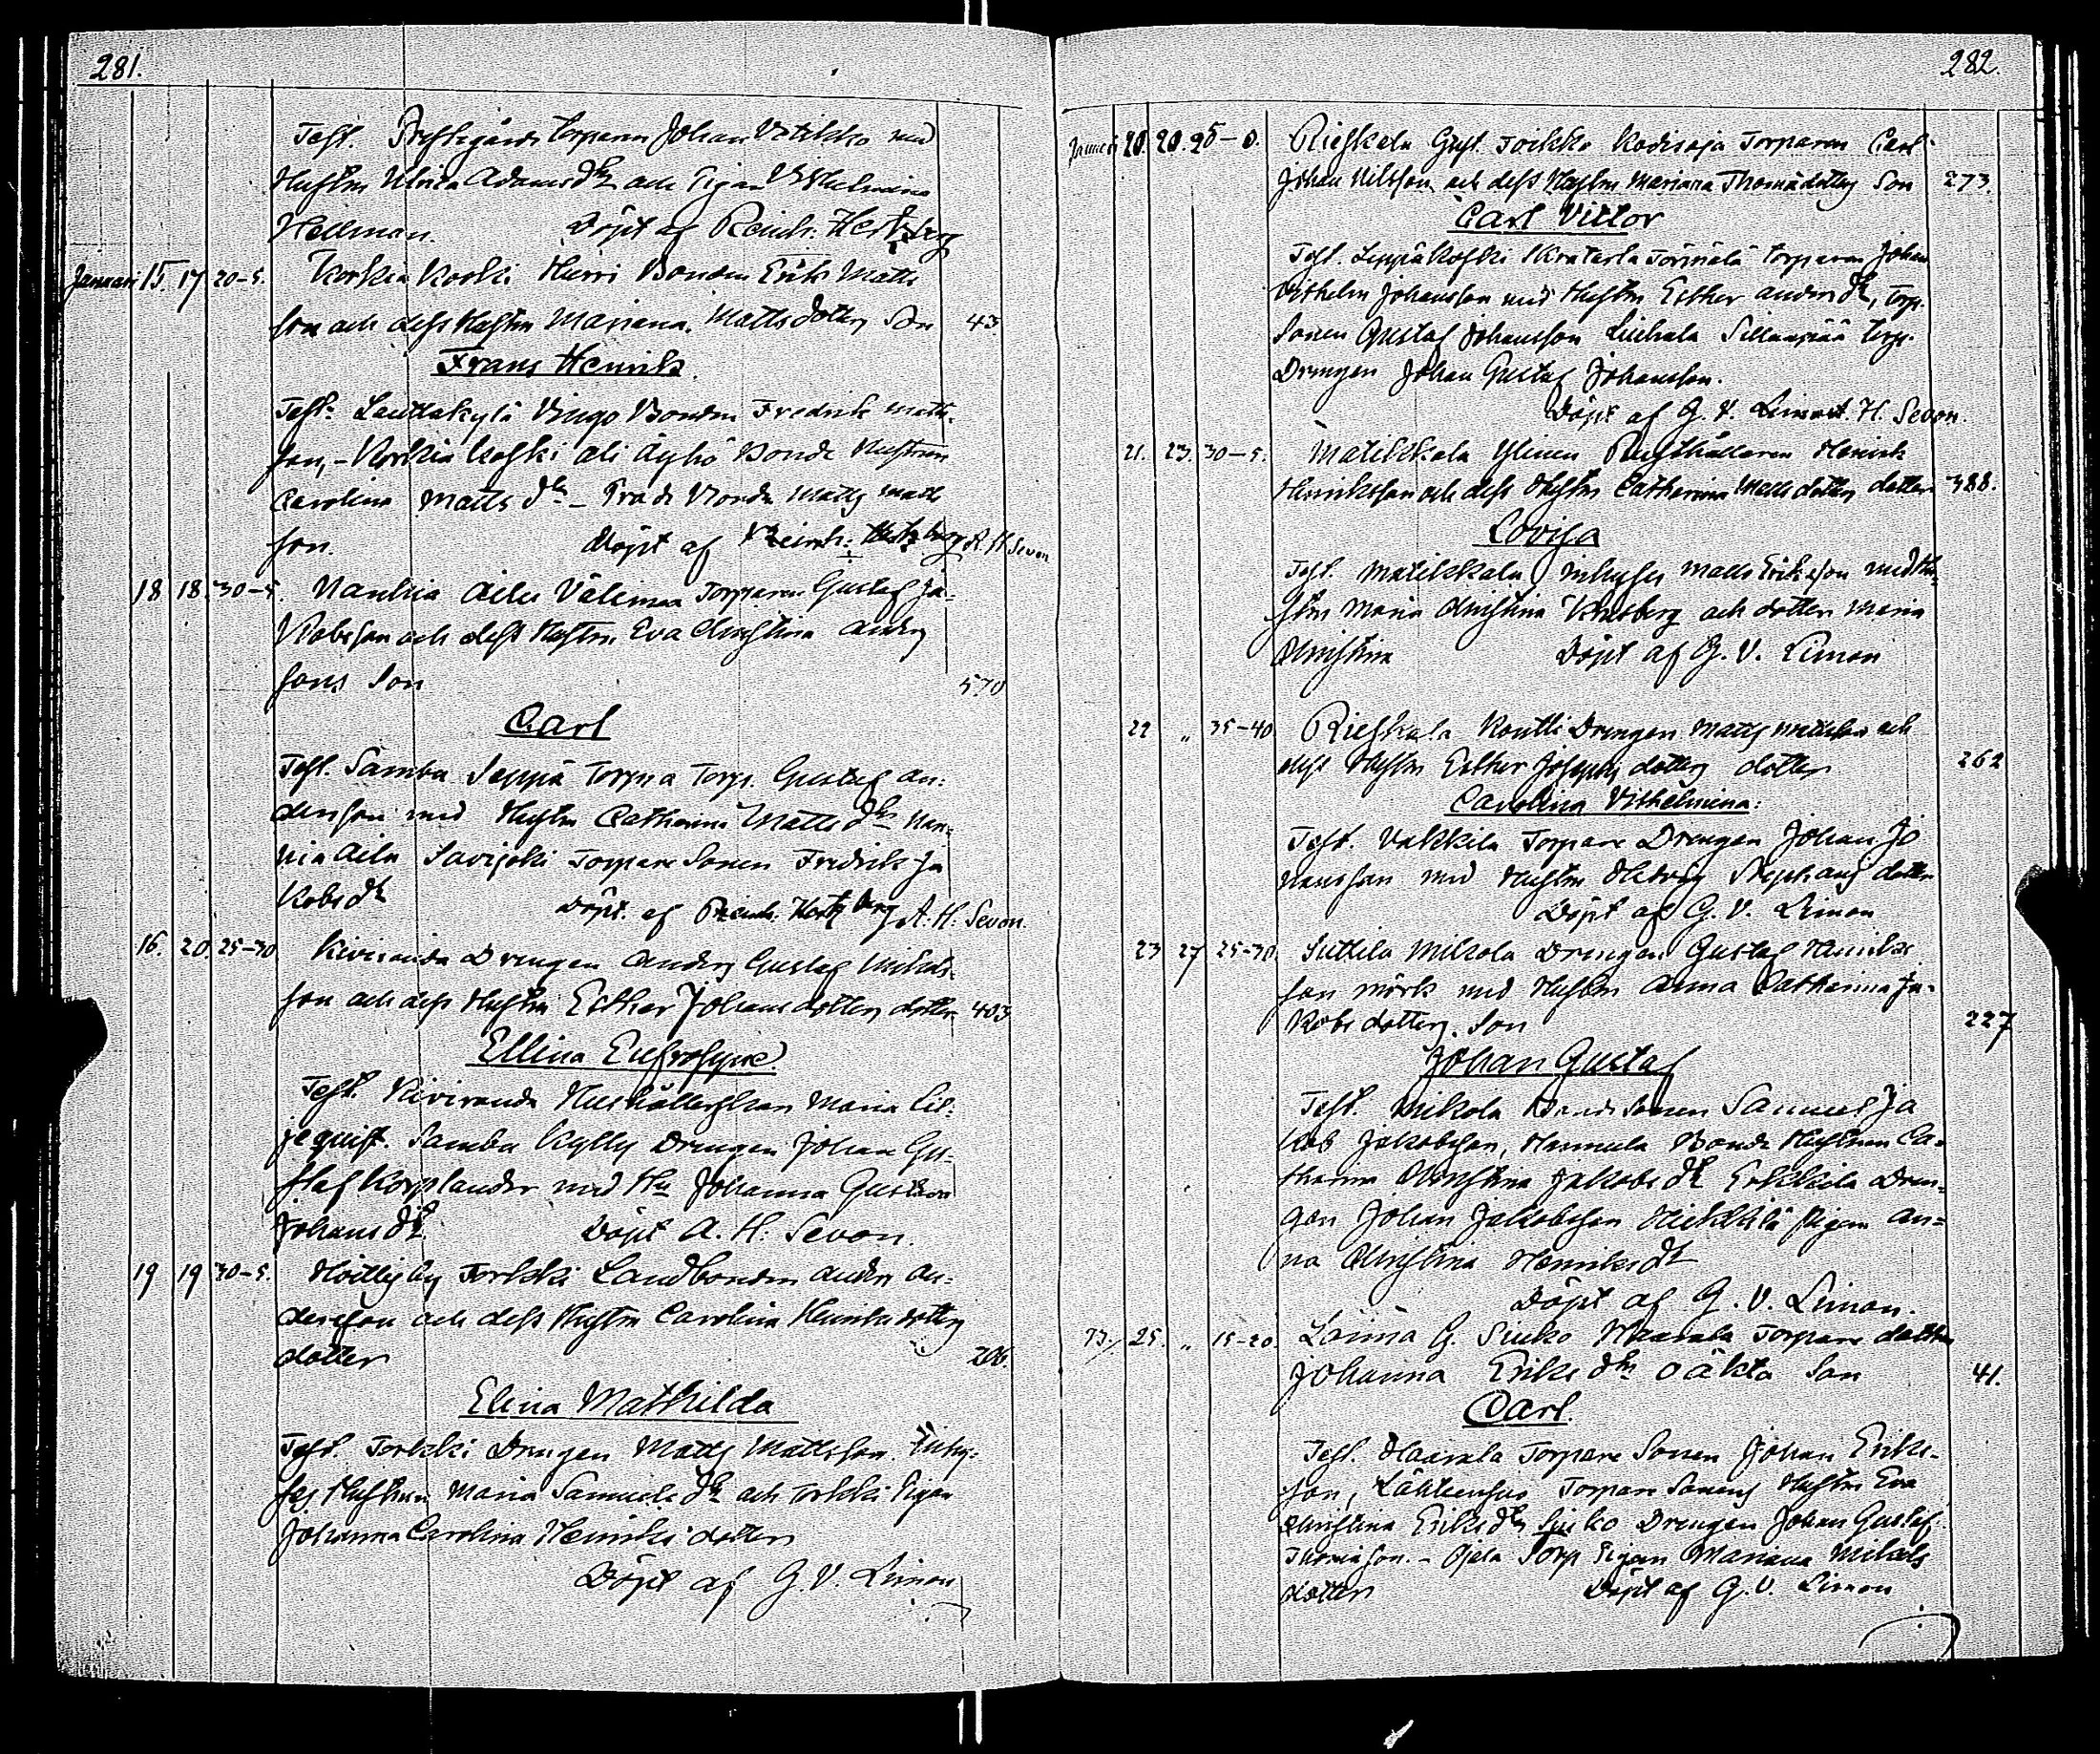 281.
Test. Prestgårds torparen Johan Utikko med
Hustru Ulrica Adamsdr och Pigan Vilhelmina
Hellman. Döpt af Reinh. Hertzberg
Januari 15. 17 20-5. Korkia Koski Hurri Bonden Erik Matts
son och dess Hustru Mariana Mattsdotters Son 43
Frans Henrik
Test. Lauttakylä Vingo Bonden Fredrik Matts
son, - Korkia koski ali Äyhö Bonde Hustrun
Carolina Matts dr - Bonden Matts Matts
son. Döpt af Reinh. Hertzberg A. H. Sevon
18 18. 30-5. Nankia Aila Välimaa Torparen Gustaf Ja=
kobsson och dess Hustru Eva Christina Anders
sons Son 570
Carl
Test. Sambu Seppä Torppa Torp. Gustaf An=
dersson med Hustru Catharina Matts dr Nan=
kia Aila Savijoki Torpare Sonen Fredrik Ja
kobs dr Döpt. af Reinh. Hertzberg A. H. Sevon.
16. 20. 25-30 Kiviranda Drengen Anders Gustaf Mikels=
son och dess Hustru Esther Johansdotters dotter 403
Ellina Eufrosyne
Test. Kiviranda Hushållerskan Maria Lil=
jequist. Sambu Kylly Drengen Johan Gu=
staf Korplander med Hu Johanna Gustava
Johans dr Döpt A. H. Sevon.
19 19 30-5. Hvittisby Torkki Landbonden Anders An=
dersson och dess Hustru Carolina Henriksdotters
dotter 206.
Elina Mathilda
Test. Torkki Drengen Matts Mattsson. Inhy=
ses Hustrun Maria Samuels dr och Torkki Pigan
Johanna Carolina Henriks dotter
Döpt af G. V. Limon
282.
Januari 20. 20. 25-0. Rieskala Gust. Toikko Kodisoja Torparen Carl
Johan Nilsson och dess Hustru Mariana Thomædotters Son 273.
Carl Victor
Test. Leppäkoski Skratarla Törmälä torparen Johan
Vilhelm Johansson med Hustru Esther Anders dr, Torp.
Sonen Gustaf Johansson Luhala Sillanpää torp.
Drengen Johan Gustaf Johansson.
Döpt af G. V. Limon A. H. Sevon.
21. 23. 30-5. Matikkala Ylinen Rusthållaren Henrik
Henriksson och dess Hustru Catharina Matts dotters dotter 388.
Lovisa
Test. Matikkala inhyses Matts Eriksson med Hu=
stru Maria Christina och dotter Maria
Christina Döpt af G. V. Limon
22 " 35-40 Rieskala Koutti Drengen Matts Mattsson och
dess Hustru Esther Josephs dotters dotter 262
Carolina Vilhelmina:
Test. Vakkila Torpare Drengen Johan Jo
hansson med Hustru Hedvig Stephans dotter
Döpt af G. V. Limon
23 27 25-30. Suttila Mikola Drengen Gustaf Henriks
son Mörk med Hustru Anna Catharina Ja=
kobs dotters. Son 227
Johan Gustaf
Test. Mikola Bonde Sonen Samuel Ja
kob Jakobsson, Hannula Bonde Hustrun Ca=
tharina Christina Jakobs dr Erkkila Dren=
gen Johan Jakobsson Pigan An=
na Christina Henriks dr
Döpt af G. V. Limon.
73/ 25. " 15-20. Loima G. Siuko Maarala Torpare dottern
Johanna Eriks drs oäkta Son 41.
Carl.
Test. Maarala Torpare Sonen Johan Eriks=
son, Torpare Sonens Hustru Eva
Christina Eriks dr Siuko Drengen Johan Gustaf
Thomasson. - Ojala Torp Pigan Mariana Mikels
dotter Döpt af G. V. Limon